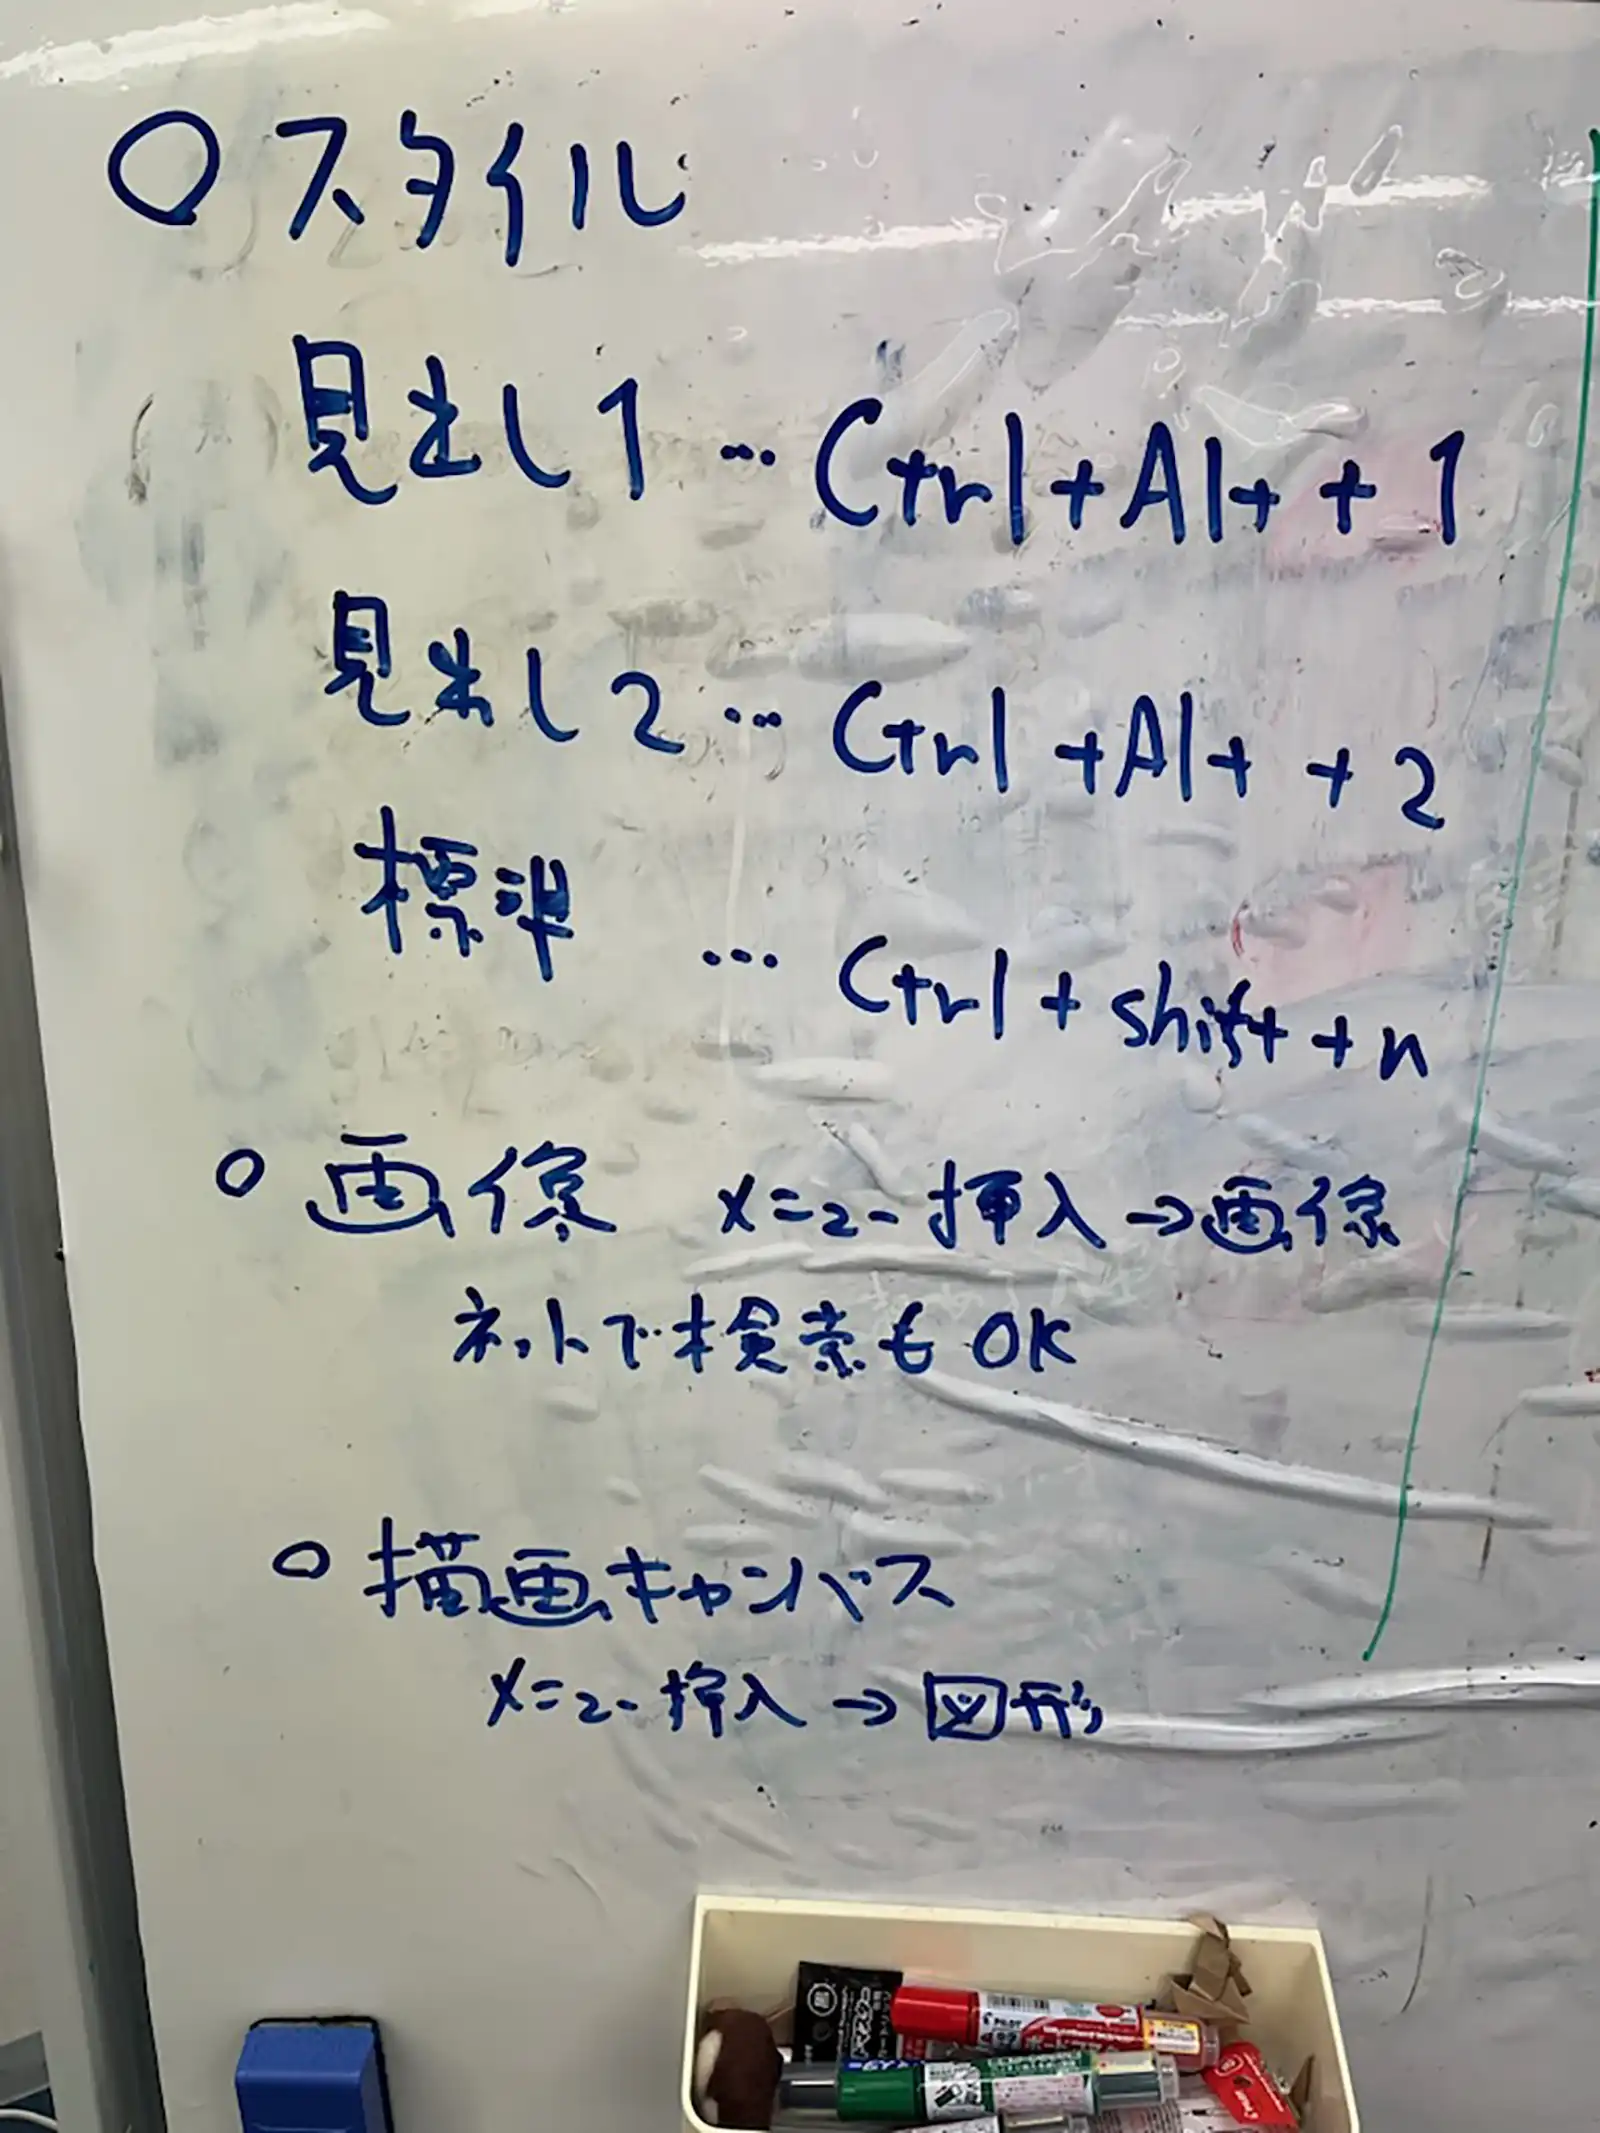 ○スタイル
見出し1…Ctrl+Alt+1
見出し2…Ctrl+Alt+2
標準…Ctrl+shift+n
○画像 メニュー挿入→画像
ネットで検索もOK
○描画キャンバス
メニュー挿入→図形
PILOT